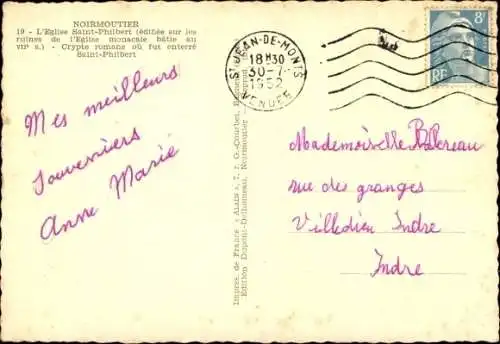 NOIRMOUTIER
19 - L'Eglise Saint-Philbert (édifiée sur les
ruines de l'Eglise monacale bâtie au
VIIe s.) - Crypte romane où fut enterré
Saint-Philbert
Mes meilleurs
souveniers
Anne Marie
Impres. de France « Alain », 7, r. G.-Courbet,
Edition Dupont-Delhomeau, Noirmoutier
ST JEAN-DE-MONTS
18H30
30-7-
1952
VENDEE
8F
RF
Mademoiselle
rue des granges
Villedieu Indre
Indre